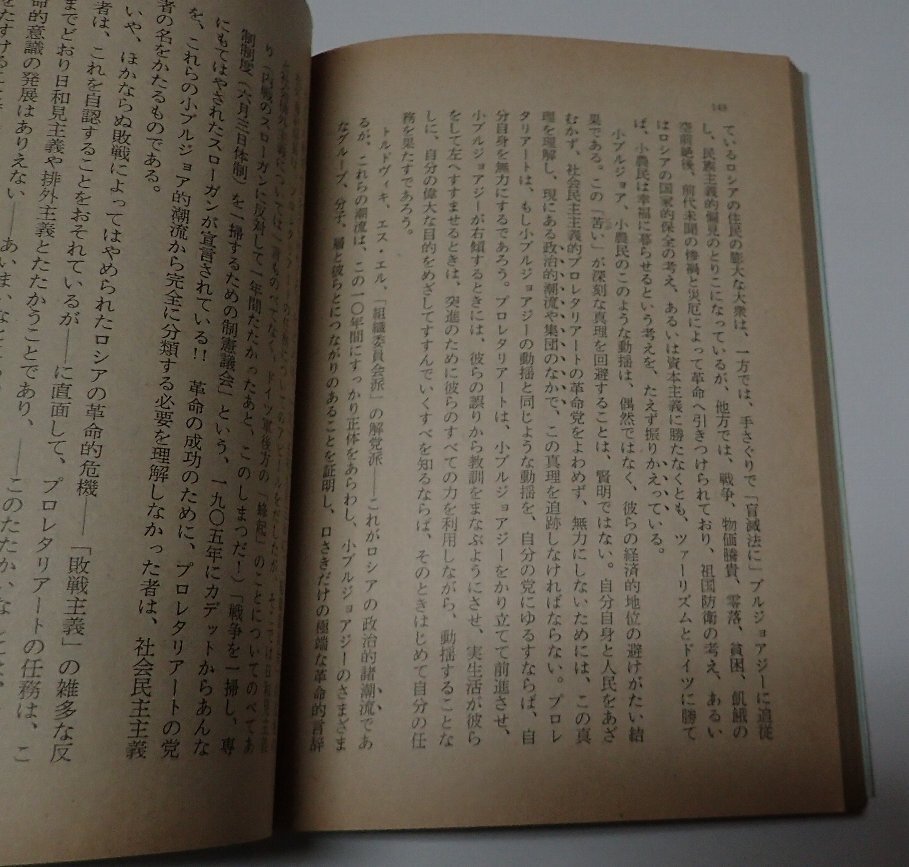 148
ているロシアの住民の膨大な大衆は、一方では、手さぐりで「盲滅法に」ブルジョアジーに追従
し、民族主義的偏見のとりこになっているが、他方では、戦争、物価騰貴、零落、貧困、飢餓の
空前絶後、前代未聞の惨禍と災厄によって革命へ引きつけられており、祖国防衛の考え、あるい
はロシアの国家的保全の考え、あるいは資本主義に勝たなくとも、ツァーリズムとドイツに勝て
ば、小農民は幸福に暮らせるという考えを、たえず振りかえっている。
小ブルジョア、小農民のこのような動揺は、偶然ではなく、彼らの経済的地位の避けがたい結
果である。この「苦い」が深刻な真理を回避することは、賢明ではない。自分自身と人民をあざ
むかず、社会民主主義的プロレタリアートの革命党をよわめず、無力にしないためには、この真
理を理解し、現にある政治的潮流や集団のなかで、この真理を追跡しなければならない。プロレ
タリアートは、もし小ブルジョアジーの動揺と同じような動揺を、自分の党にゆるすならば、自
分自身を無力にするであろう。プロレタリアートは、小ブルジョアジーをかり立てて前進させ、
小ブルジョアジーが右傾するときには、彼らの誤りから教訓をまなぶようにさせ、実生活が彼ら
をして左へすすませるときは、突進のために彼らのすべての力を利用しながら、動揺することな
しに、自分の偉大な目的をめざしてすすんでいくすべを知るならば、そのときはじめて自分の任
務を果たすであろう。
トルドヴィキ、エス・エル、「組織委員会派」の解党派――これがロシアの政治的諸潮流であ
るが、これらの潮流は、この一〇年間にすっかり正体をあらわし、小ブルジョアジーのさまざま
なグループ、分子、層と彼らとにつながりのあることを証明し、口さきだけの極端な革命的言辞
ドイツ軍後方の「縁起」のことについてのべてあ
り（内戦のスローガンに反対して一年間たたかったあと、このしまつだ！）「戦争を一掃し、専
制制度（六月三日体制）を一掃するための制憲議会」という、一九〇五年にカデットからあんな
にもてはやされたスローガンが宣言されている!! 革命の成功のために、プロレタリアートの党
を、これらの小ブルジョア的潮流から完全に分類する必要を理解しなかった者は、社会民主主義
者の名をかたるものである。
いや、ほかならぬ敗戦によってはやめられたロシアの革命的危機――「敗戦主義」の雑多な反
者は、これを自認することをおそれているが――に直面して、プロレタリアートの任務は、こ
までどおり日和見主義や排外主義とたたかうことであり、――このたたかいなしには、
命的意識の発展はありえない――あいまいな
たすけること